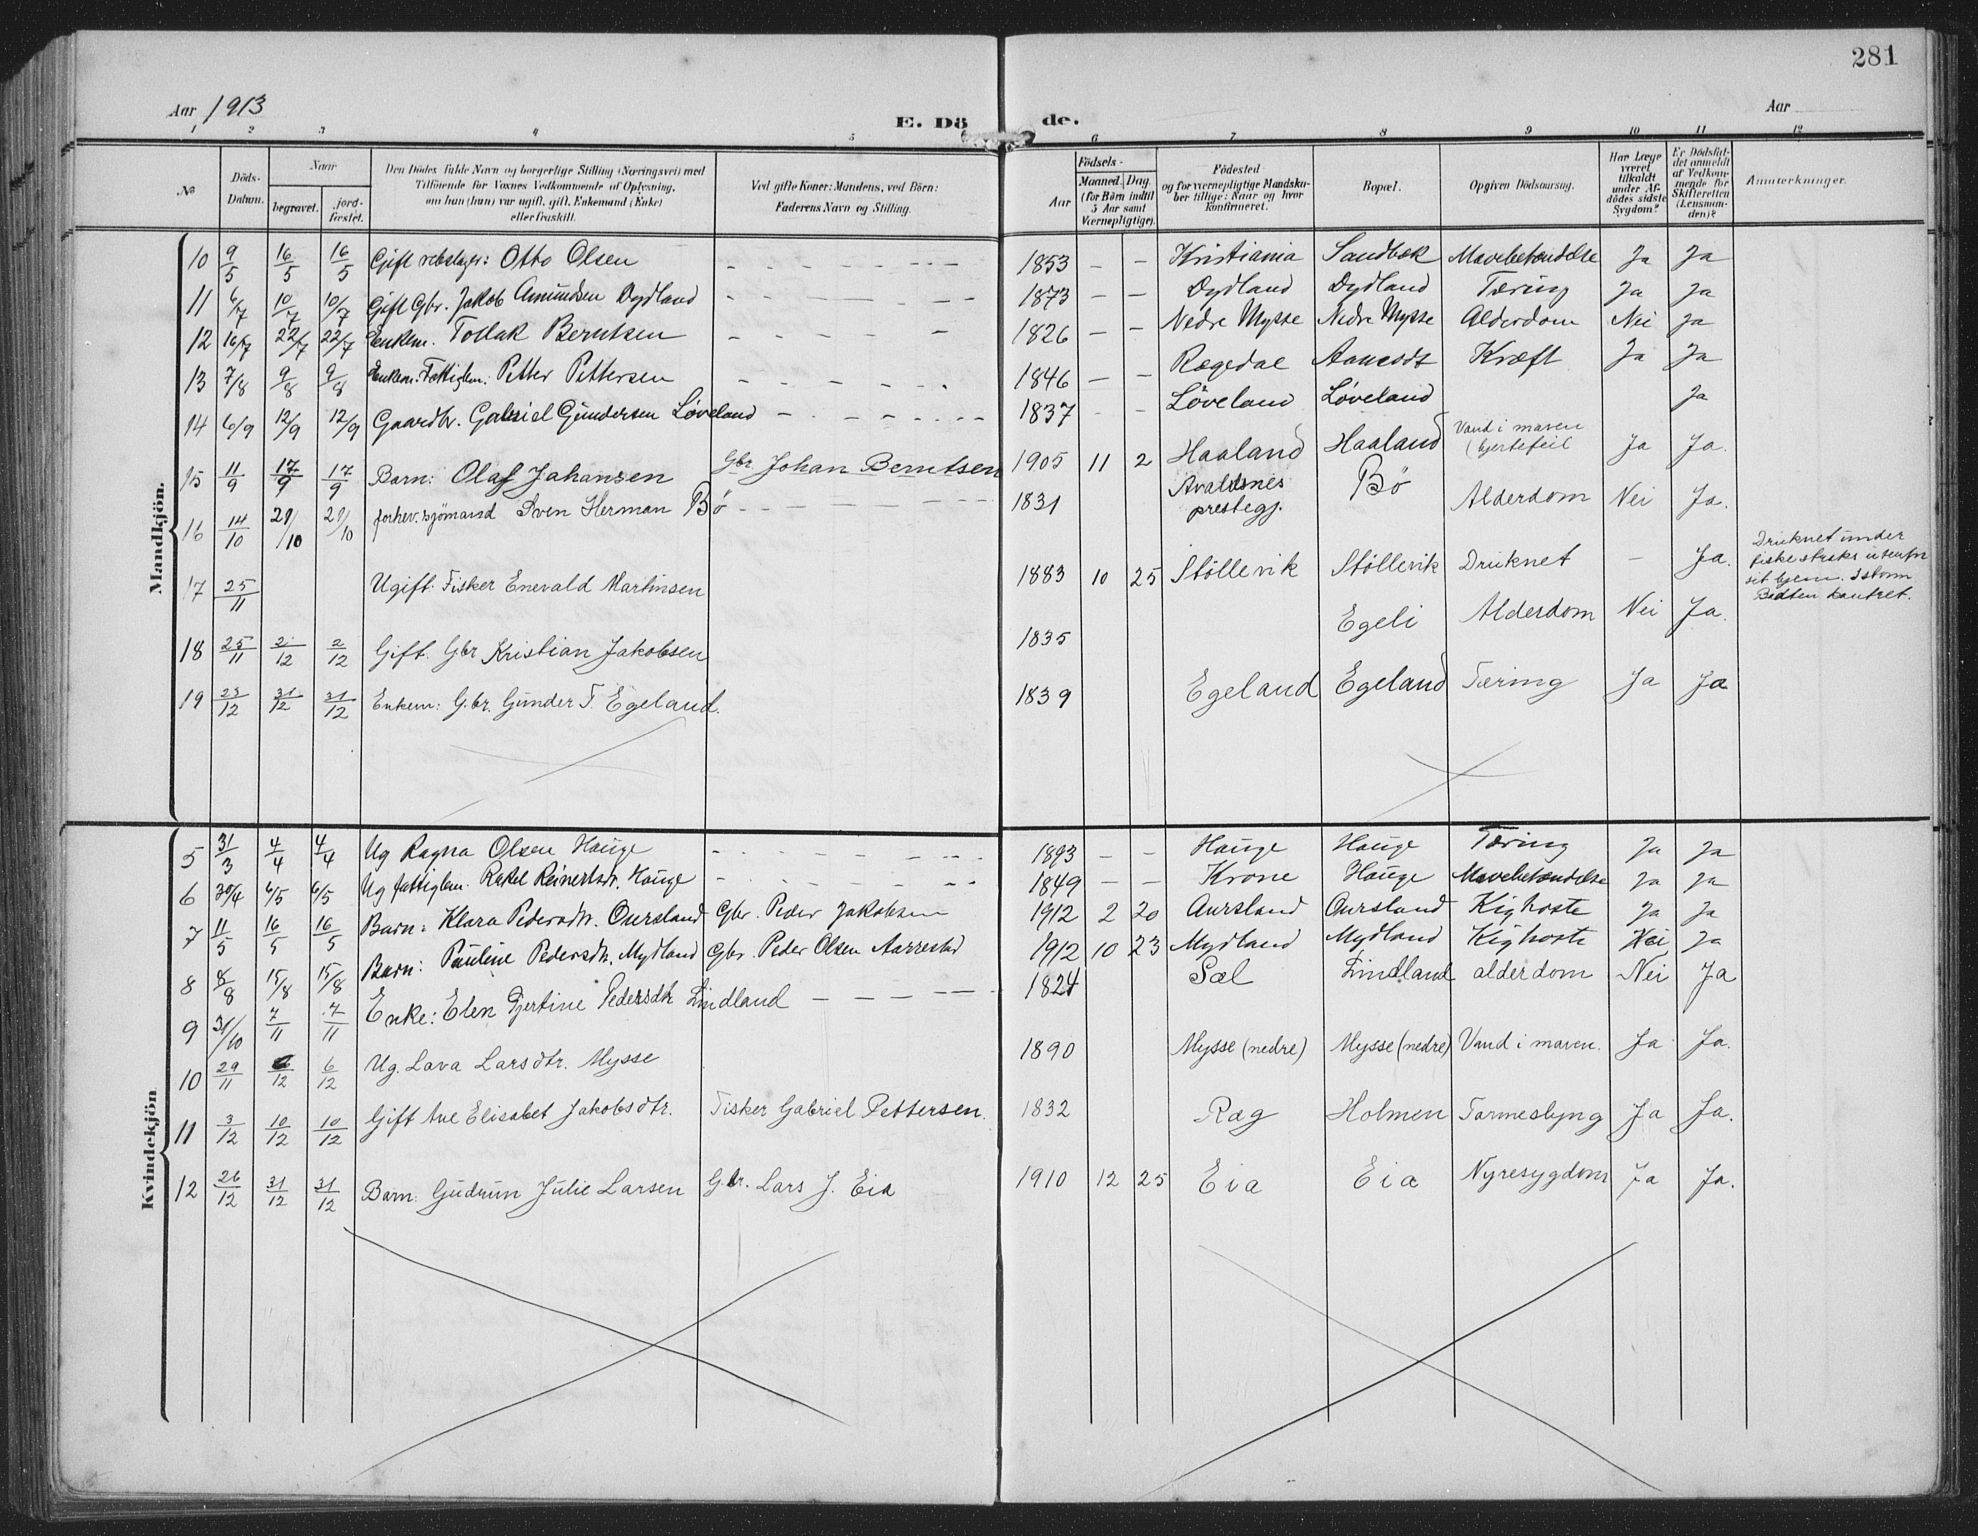 281
Aar 1913
E. Dö
de.
Aar
1 2 3 4 5 6 6 7 8 9 10 11 12
№
Döds-Datum.
Naar
begravet.
jord-fæstet.
Den Dödes fulde Navn og borgerlige Stilling (Næringsvei) med
Tilföiende for Voxnes Vedkommende af Oplysning,
om han (hun) var ugift, gift, Enkemand (Enke)
eller fraskilt.
Ved gifte Koner: Mandens, ved Börn:
Faderens Navn og Stilling.
Födsels-
Aar
Maaned. Dag.
(for Börn indtil
5 Aar samt
Værnepligtige).
Födested
og for værnepligtige Mandska-
ber tillige: Naar og hvor
konfirmeret.
Bopæl.
Opgiven Dödsaarsag.
Har Læge
været
tilkaldt
under Af-
dödes sidste
Sygdom?
Er Dödsfal-
det anmeldt
af Vedkom-
mende for
Skifteretten
(Lensman-
den)?
Anmærkninger.
Mandkjön.
10 9/5 16/5 16/5 Gift rebslager: Otto Olsen - - - 1853 - - Kristiania Sandbæk Mavebetændelse Ja Ja
11 6/7 10/7 10/7 Gift Gbr. Jakob Amundsen Dydland - - - 1873 - - Dydland Dydland Tæring Ja Ja
12 16/7 22/7 22/7 Enkem. Tollak Berntsen - - - 1826 - - Nedre Mysse Nedre Mysse Alderdom Nei Ja
13 7/8 9/8 9/8 Enkem. Fattiglem. Petter Pettersen - - - 1846 - - Rægedal Aanesdt Kræft Ja Ja
14 6/9 12/9 12/9 Gaardbr. Gabriel Gundersen Løveland - - - 1837 - - Løveland Løveland Ja
15 11/9 17/9 17/9 Barn: Olaf Johansen Gbr. Johan Berntsen 1905 11 2 Haaland Haaland Vand i maven (hjertefeil Ja Ja.
16 14/10 21/10 21/10 forhev. sjømand Sven Herman Bø - - - 1831 Avaldsnes prestegj. Bø Alderdom Nei Ja.
17 25/11 Ugift. Fisker Enevald Martinsen 1883 10 25 Støllevik Støllevik Druknet - Ja. Druknet under
fiske straks utenfor
sit hjem. I storm
Baaten kantret.
18 25/11 2/12 2/12 Gift. Gbr Kristian Jakobsen 1835 Egeli Alderdom Nei Ja.
19 23/12 31/12 31/12 Enkem: G.br. Gunder T. Egeland. 1839 Egeland Egeland Tæring Ja Ja
Kvindekjön
5 31/3 4/4 4/4 Ug Ragna Olsen Hauge - - - 1893 - - Hauge Hauge Tæring Ja Ja
6 30/4 6/5 6/5 Ug fattiglem. Rakel Reinertsdr. Hauge - - - 1849 - - Krone Hauge Mavebetændelse Ja Ja
7 11/5 16/5 16/5 Barn: Klara Pedersdtr. Oursland Gbr. Peder Jakobsen 1912 2 20 Aursland Oursland Kighoste Ja Ja
8 8/8 15/8 15/8 Barn: Pauline Pedersdtr. Mydland Gbr. Peder Olsen Aarrestad 1912 10 23 Mydland Mydland Kighoste Nei Ja
9 31/10 7/11 7/11 Enke: Elen Gjertine Pedersdtr Lindland - - - 1824 Sæl Lindland alderdom Nei Ja
10 29/11 6/12 6/12 Ug. Lava Larsdtr. Mysse 1890 Mysse (nedre) Mysse (nedre) Vand i maven. Ja Ja.
11 3/12 10/12 10/12 Gift Ane Elisabet Jakobsdtr. Fisker Gabriel Pettersen. 1832 Ræg Holmen Tarmeslyng Ja Ja.
12 26/12 31/12 31/12 Barn: Gudrun Julie Larsen Gbr. Lars J. Eia 1910 12 25 Eia Eia Nyresygdom Ja Ja.